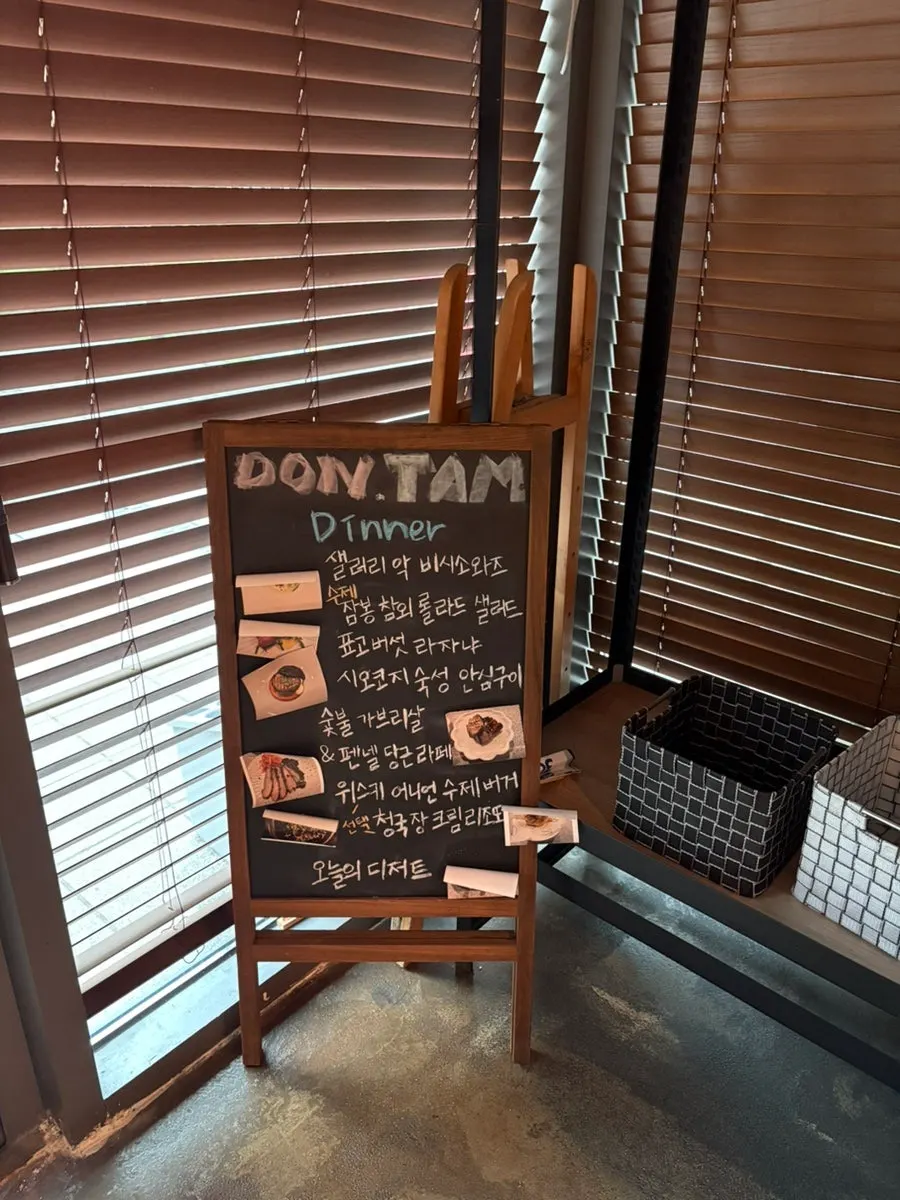 DON.TAM
Dinner
샐러리 악 비시소와즈
수제
잠봉 참외 롤라드 샐러드
표고버섯 라자냐
시오코지 숙성 안심구이
숯불 가브리살
& 펜넬 당근 라페
위스키 어니언 수제 버거
선택 청국장 크림 리조또
오늘의 디저트